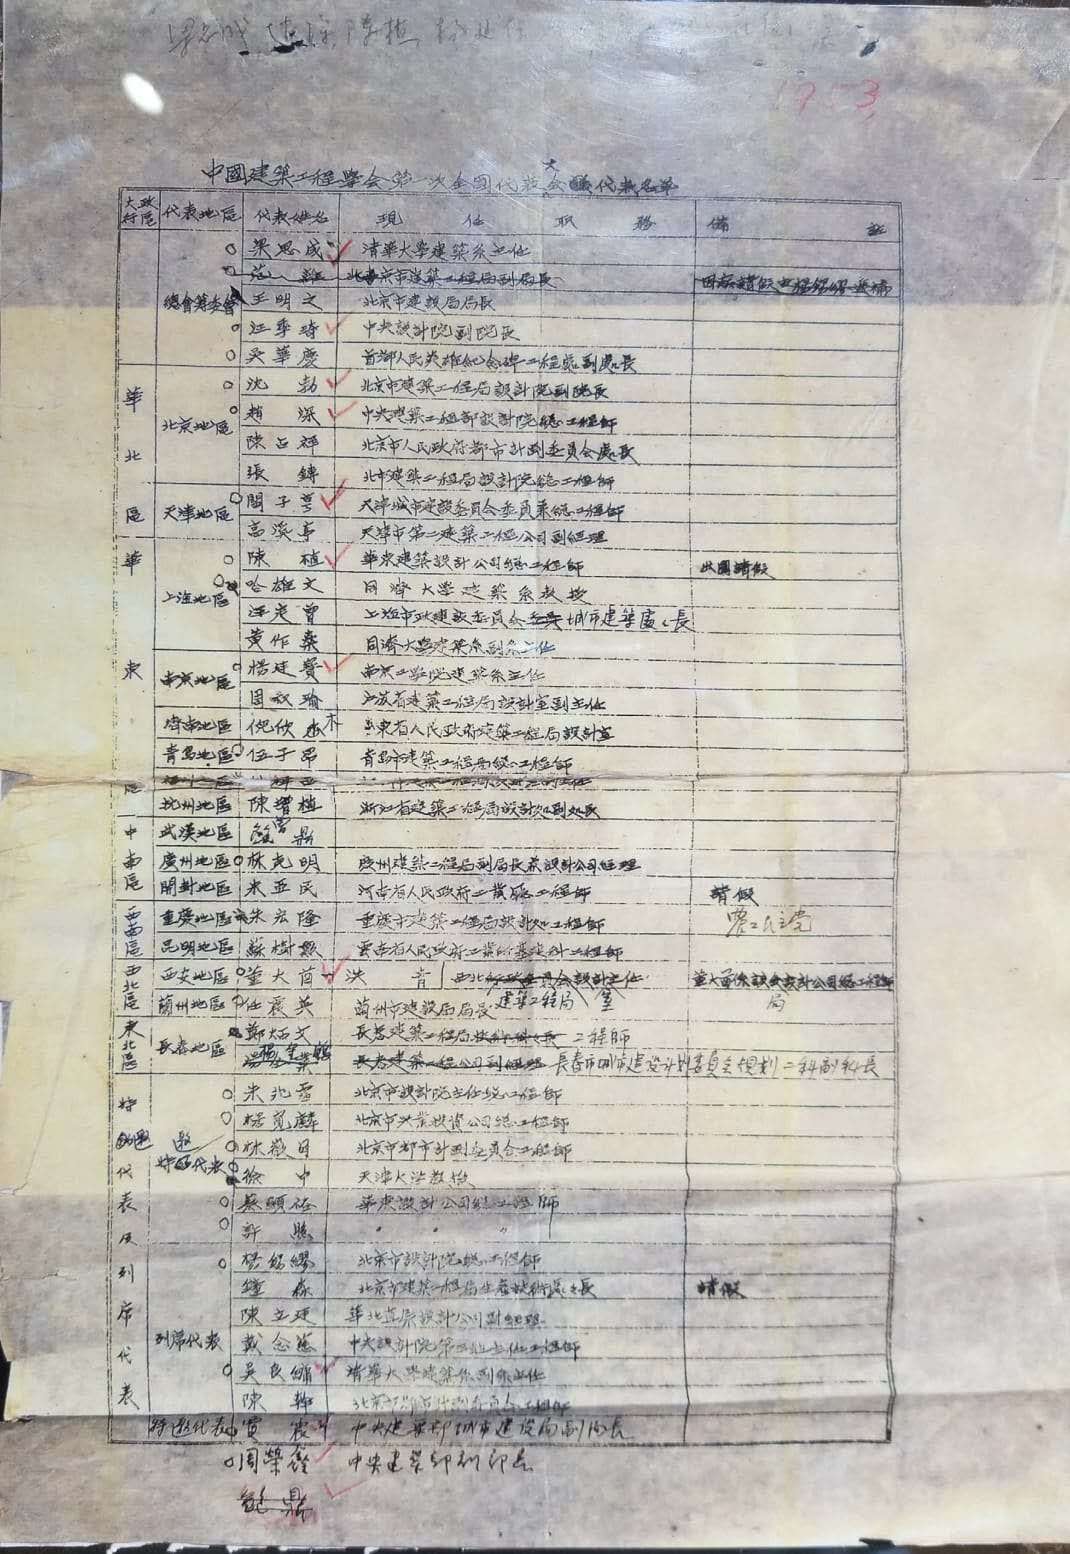 梁思成 趙深 陳植 楊廷
1953
中國建築工程學會第一次全國代表大會議代表名單
大政行區 代表地區 代表姓名 現任職務 備註
總會籌委會 梁思成 清華大學建築系主任
范離 北京市建築工程局副局長
王明之 北京市建設局局長
汪季琦 中央設計院副院長
吳華慶 首都人民英雄紀念碑工程處副處長
華北區 北京地區 沈勃 北京市建築工程局設計院副院長
趙深 中央建築工程部設計院總工程師
陳占祥 北京市人民政府都市計劃委員會處長
張鎛 北京建築工程局設計院總工程師
天津地區 閻子亨 天津城市建設委員會委員兼總工程師
高溪亭 天津市第二建築工程公司副經理
華東區 上海地區 陳植 華東建築設計公司總工程師 出國請假
哈雄文 同濟大學建築系教授
汪定曾 上海市政建設委員會 城市建築處處長
黃作燊 同濟大學建築系副系主任
南京地區 楊廷寶 南京工學院建築系主任
江蘇省建築工程局設計室副主任
濟南地區 倪欣木 山東省人民政府建築工程局設計室
青島地區 伍子昂 青島市建築工程局總工程師
杭州地區 陳曾植 浙江省建築工程局設計處副處長
中南區 武漢地區 鮑鼎
廣州地區 林克明 廣州建築工程局副局長兼設計公司經理
開封地區 米亞民 河南省人民政府工業廳工程師 請假
西南區 重慶地區 朱宏隆 重慶市建築工程局設計處工程師 農工民主党
昆明地區 蘇樹勲 雲南省人民政府工業廳基建科工程師
西北區 西安地區 董大酋 洪青 西北 建築工程局 設計室主任 董大酋係設計公司總工程師
蘭州地區 任震英 蘭州市建設局局長
東北區 長春地區 鄭炳文 長春建築工程局技術科科長 工程師
長春建築工程公司副經理 長春市城市建設計劃委員会規划二科副科長
特邀代表及列席代表
特邀代表 朱兆雪 北京市設計院主任總工程師
楊寬麟 北京市興業投資公司總工程師
林徽因 北京市都市計劃委員會工程師
徐中 天津大学教授
蔡顯裕 華東設計公司總工程師
許 〃 〃 〃
列席代表 楊錫鏐 北京市設計院總工程師
鍾森 北京市建築工程局生產技術處處長 請假
陳立廷 華北直屬設計公司副經理
戴念慈 中央設計院第三組主任工程師
吳良鏞 清華大學建築系副系主任
陳幹 北京市都市計劃委員会工程師
特邀代表 賈震 中央建築部城市建設局副局長
周榮鑫 中央建築部副部長
鮑鼎